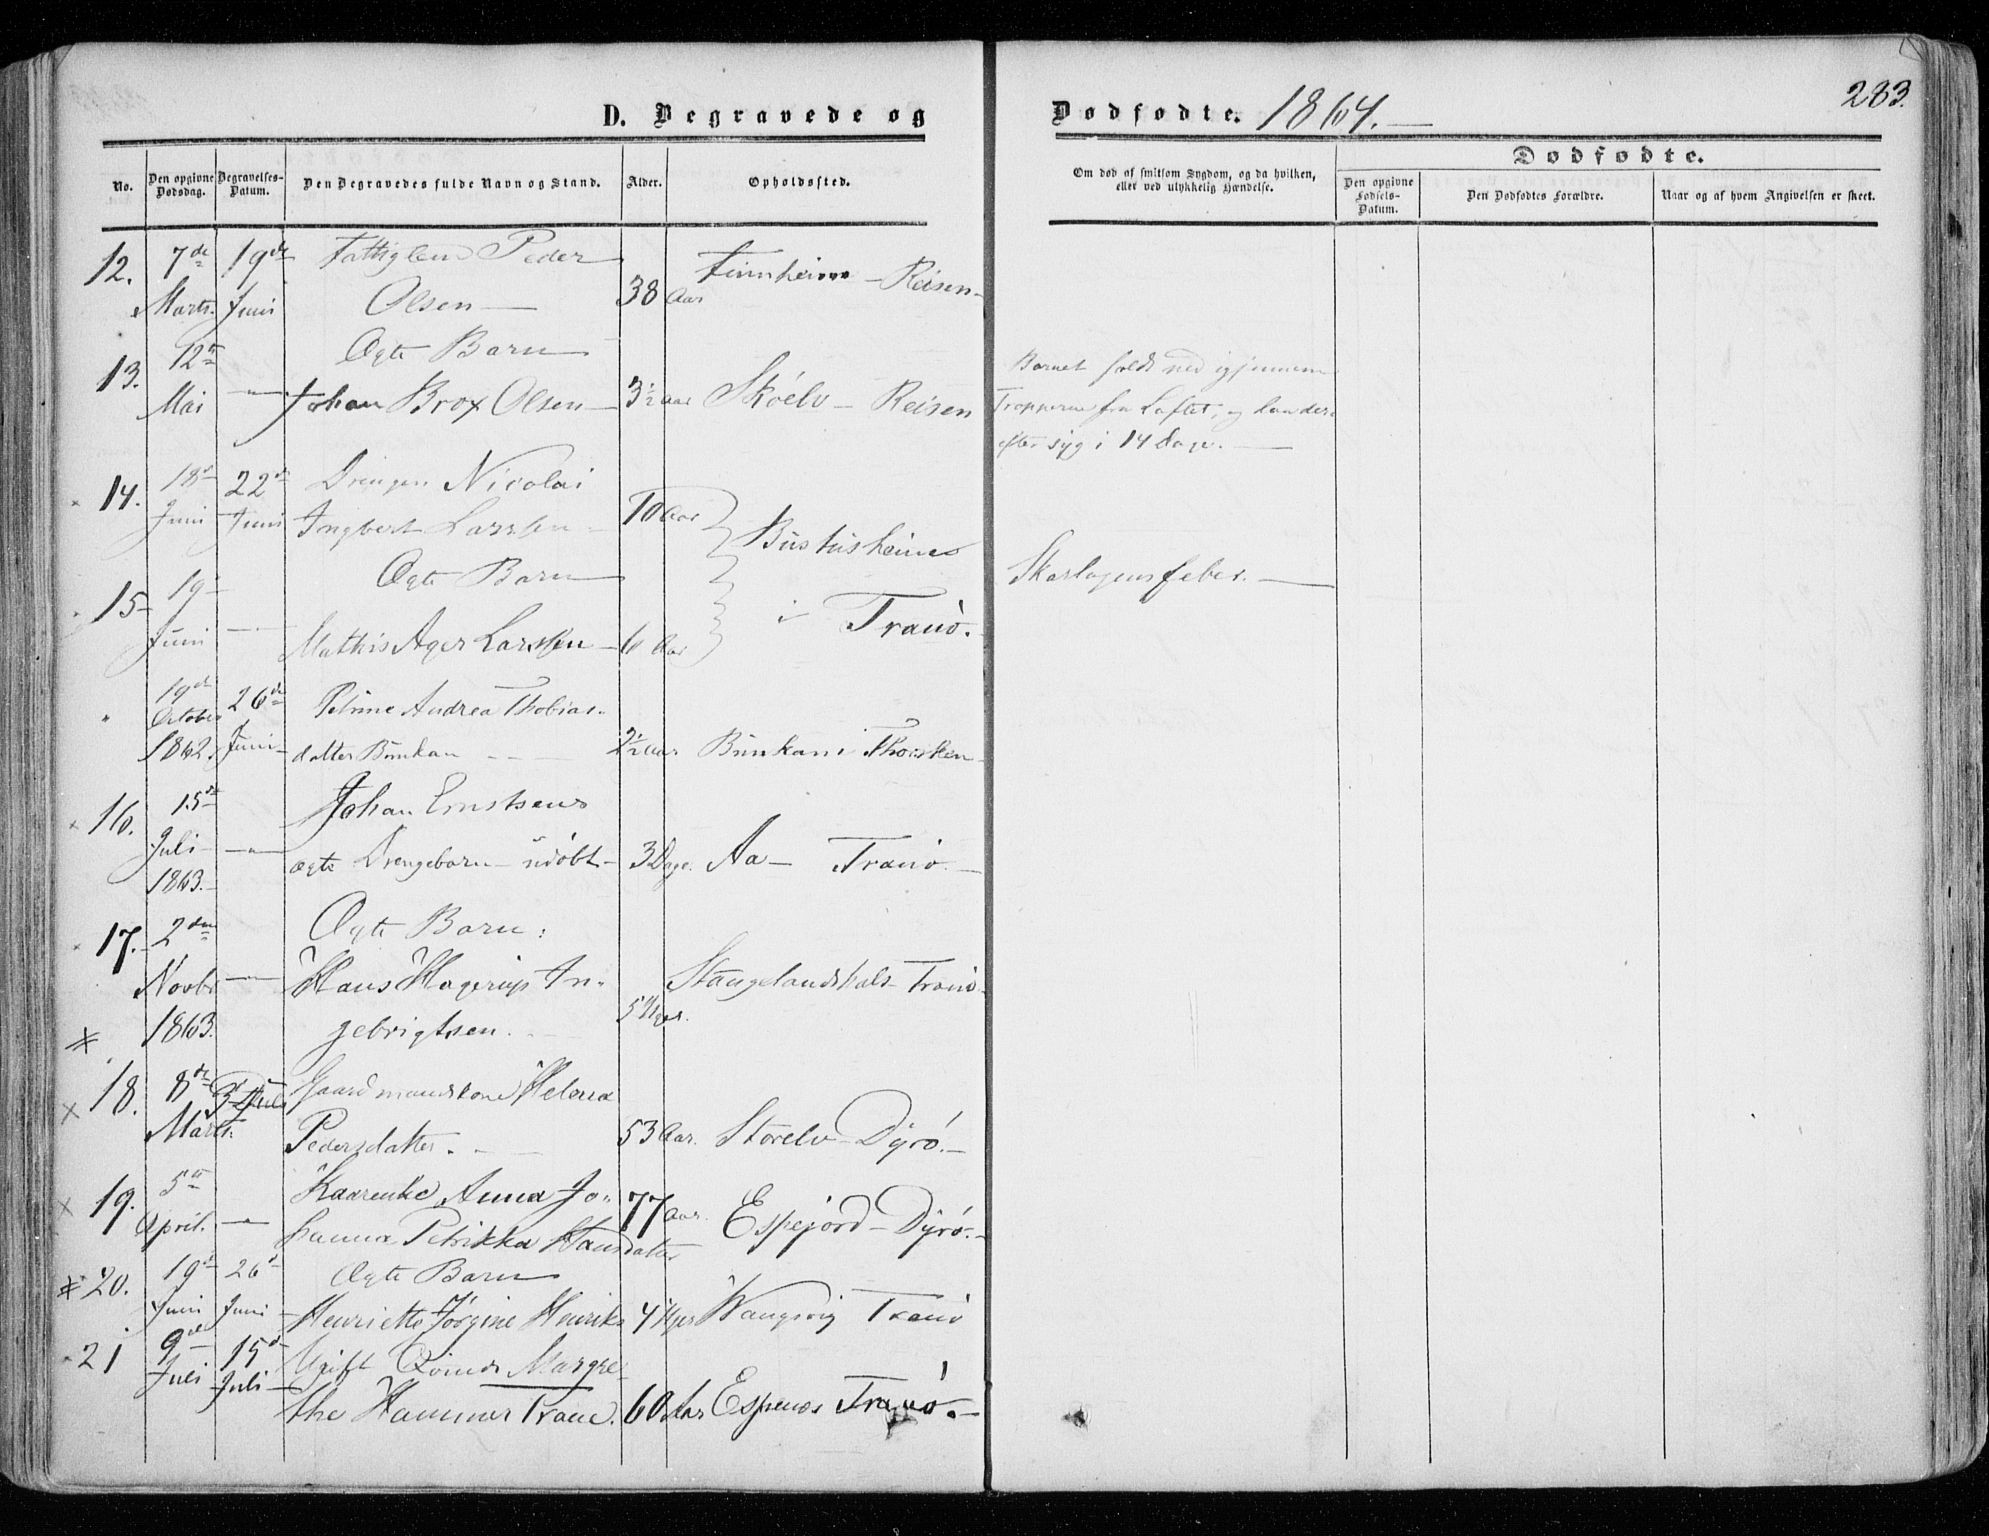 283.
D. Begravede og Dødfødte. 1864. —
Dødfødte.
No.
Den opgivne Dødsdag.
Begravelses-Datum.
Den Begravedes fulde Navn og Stand.
Alder.
Opholdssted.
Om død af smitsom Sygdom, og da hvilken, eller ved ulykkelig Hændelse.
Den opgivne Fødsels-Datum.
Den Dødfødtes Forældre.
Naar og af hvem Angivelsen er skeet.
12. 7de 19de Fattiglem Peder
Marts. Juni Olsen — 38 Aar Finnheim — Reisen —
13. 12te Ægte Barn
Mai —"— Johan Brox Olsen — 3½ Aar Skóelv — Reisen
Barnet faldt ned igjennem
Trapperne fra Loftet, og laa der-
efter syg i 14 Dage. —
14. 18de 22de Drengen Nicolai
Juni Juni Ingbert Larssen — 10 Aar
Bustusheimen
15 19 Ægte Barn
Juni —"— Mathis Ager Larssen — 6 Aar i Tranö.
Skarlagensfeber. —
" 19de October 26de Petrine Andrea Thobias-
1862. Juni — datter Bunkan — 2½ Aar. Bunkan i Thorsken —
16. 15de Johan Ernstsens
Juli —"— ægte Drengebarn — udöbt — 3 Dage. Aa — Tranö. —
1863. —
17. 2den Ægte Barn:
Novbr —"— Hans Hagerup In-
Stangelandshals Tranö.
1863. gebrigtsen. 5 Uger.
18. 8de 3d Juli Gaardmandskone Helena
Marts. Pedersdatter. — 53 Aar. Storelv — Dyrö. —
19. 5te Kaarenke Anna Jo-
April. —"— hanna Petrikka Hansdatter 77 Aar. Espejord — Dyrö. —
20. 19de 26d Ægte Barn
Juni Juni — Henriette Jörgine Henriks 4 Uger Wangsvig Tranö
21 9de 15d Ugift Qvinde Margre-
Juli Juli — the Hammer Trane. 60 Aar Espenes Tranö. —